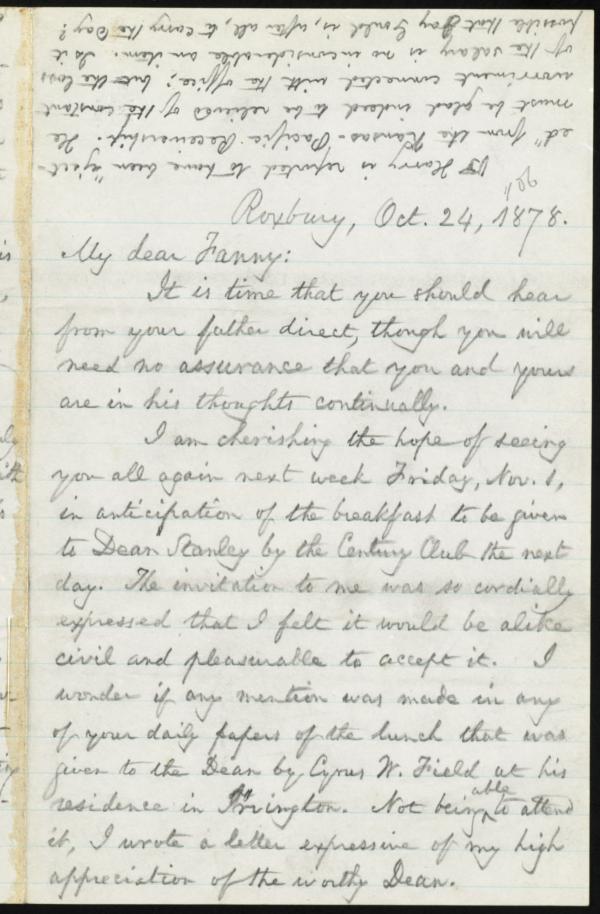 Roxbury, Oct. 24, 1878.
My dear Fanny:
It is time that you should hear
from your father direct, though you will
need no assurance that you and yours
are in his thoughts continually.
I am cherishing the hope of seeing
you all again next week Friday, Nov. 1,
in anticipation of the breakfast to be given
to Dean Stanley by the Century Club the next
day. The invitation to me was so cordially
expressed that I felt it would be alike
civil and pleasurable to accept it. I
wonder if any mention was made in any
of your daily papers of the lunch that was
given to the Dean by Cyrus W. Field at his
residence in Irvington. Not being able to attend
it, I wrote a letter expressive of my high
appreciation of the worthy Dean.
Harry is reported to have been "eject-
ed" from the Kansas-Pacific Receivership. He
must be glad indeed to be relieved of the constant
worriment connected with the office; but the loss
of the salary is no inconsiderable an item. Is it
possible that Jay Gould is, after all, to carry the day?